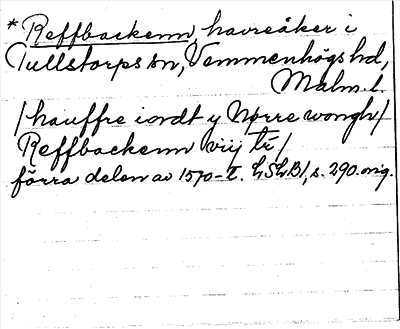 * Reffbackenn, havreåker i
Tullstorps sn, Vemmenhögs hd,
Malm. l.
/hauffre iordt y Nørre wongh/
Reffbackenn viij tr/
förra delen av 1570-t. LSLB1, s. 290. orig.